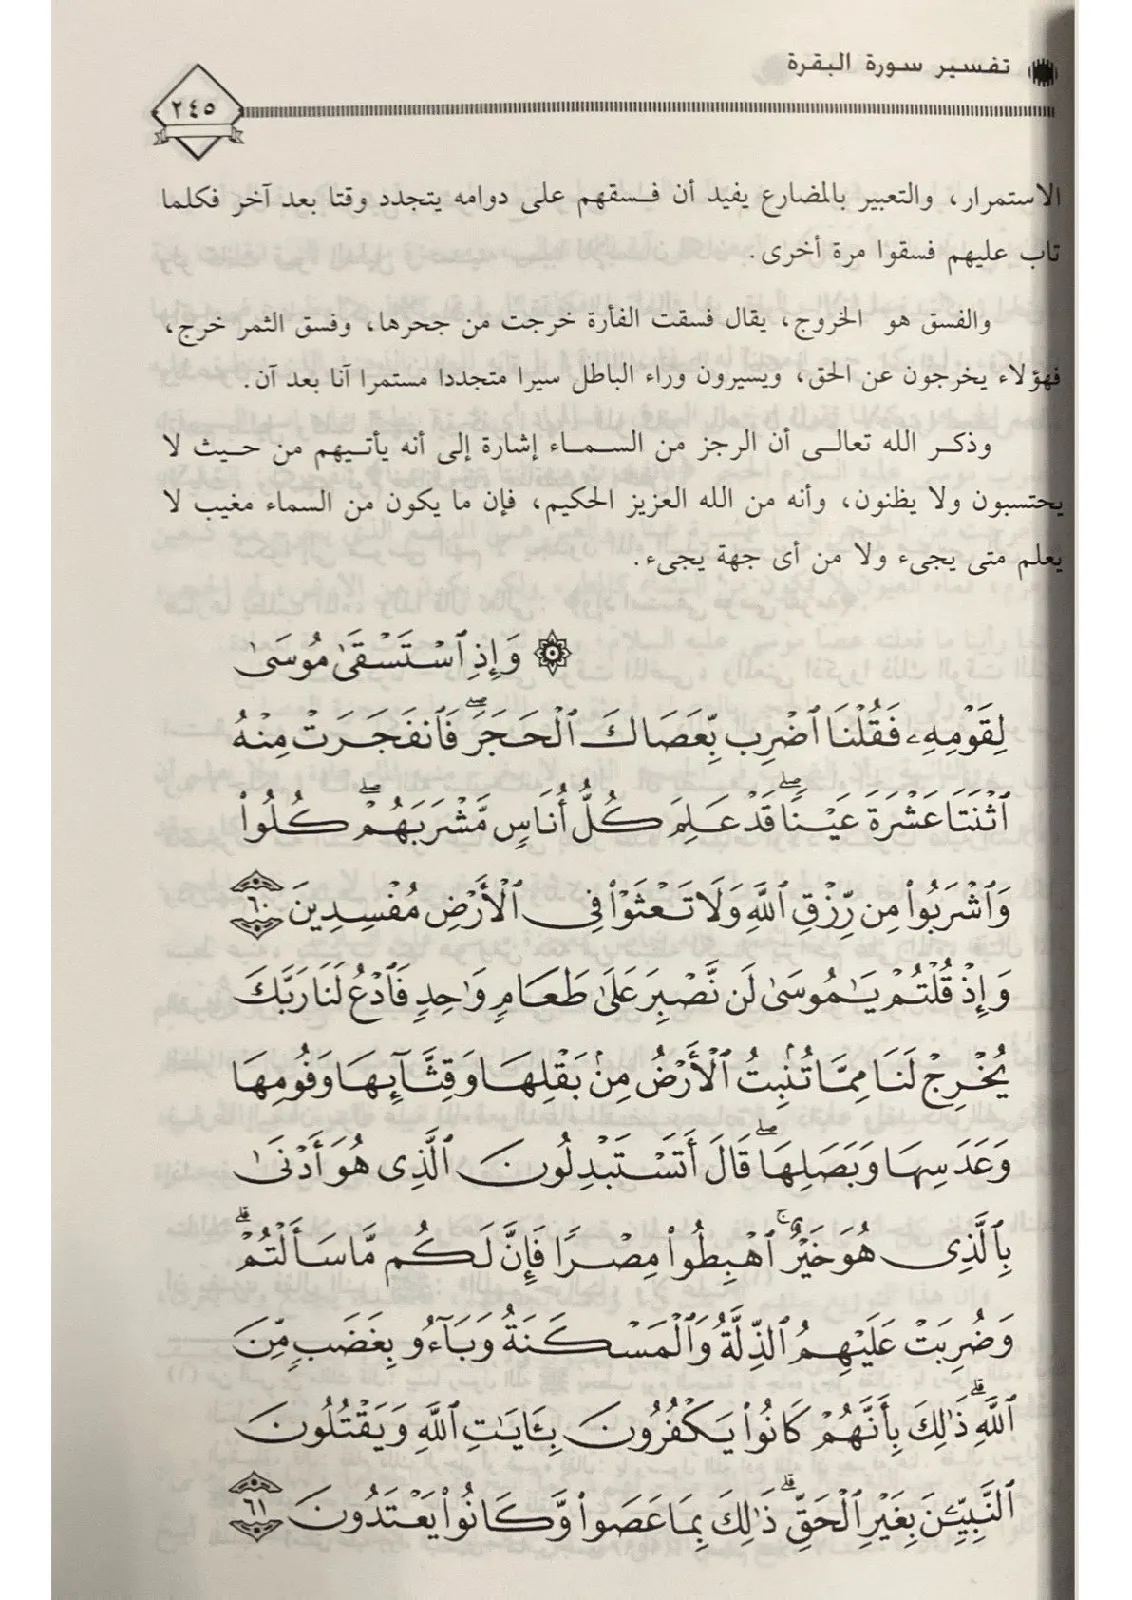 تفسير سورة البقرة
٢٤٥
الاستمرار، والتعبير بالمضارع يفيد أن فسقهم على دوامه يتجدد وقتا بعد آخر فكلما
تاب عليهم فسقوا مرة أخرى.
والفسق هو الخروج، يقال فسقت الفأرة خرجت من جحرها، وفسق الثمر خرج،
فهؤلاء يخرجون عن الحق، ويسيرون وراء الباطل سيرا متجددا مستمرا آنا بعد آن.
وذكر الله تعالى أن الرجز من السماء إشارة إلى أنه يأتيهم من حيث لا
يحتسبون ولا يظنون، وأنه من الله العزيز الحكيم، فإن ما يكون من السماء مغيب لا
يعلم متى يجىء ولا من أى جهة يجىء.
۞ وَإِذِ ٱسْتَسْقَىٰ مُوسَىٰ
لِقَوْمِهِۦ فَقُلْنَا ٱضْرِب بِّعَصَاكَ ٱلْحَجَرَ ۖ فَٱنفَجَرَتْ مِنْهُ
ٱثْنَتَا عَشْرَةَ عَيْنًا ۖ قَدْ عَلِمَ كُلُّ أُنَاسٍ مَّشْرَبَهُمْ ۖ كُلُوا۟
وَٱشْرَبُوا۟ مِن رِّزْقِ ٱللَّهِ وَلَا تَعْثَوْا۟ فِى ٱلْأَرْضِ مُفْسِدِينَ ٦٠
وَإِذْ قُلْتُمْ يَـٰمُوسَىٰ لَن نَّصْبِرَ عَلَىٰ طَعَامٍ وَٰحِدٍ فَٱدْعُ لَنَا رَبَّكَ
يُخْرِجْ لَنَا مِمَّا تُنۢبِتُ ٱلْأَرْضُ مِنۢ بَقْلِهَا وَقِثَّآئِهَا وَفُومِهَا
وَعَدَسِهَا وَبَصَلِهَا ۖ قَالَ أَتَسْتَبْدِلُونَ ٱلَّذِى هُوَ أَدْنَىٰ
بِٱلَّذِى هُوَ خَيْرٌ ۚ ٱهْبِطُوا۟ مِصْرًا فَإِنَّ لَكُم مَّا سَأَلْتُمْ ۗ
وَضُرِبَتْ عَلَيْهِمُ ٱلذِّلَّةُ وَٱلْمَسْكَنَةُ وَبَآءُو بِغَضَبٍ مِّنَ
ٱللَّهِ ۗ ذَٰلِكَ بِأَنَّهُمْ كَانُوا۟ يَكْفُرُونَ بِـَٔايَـٰتِ ٱللَّهِ وَيَقْتُلُونَ
ٱلنَّبِيِّـۧنَ بِغَيْرِ ٱلْحَقِّ ۗ ذَٰلِكَ بِمَا عَصَوا۟ وَّكَانُوا۟ يَعْتَدُونَ ٦١